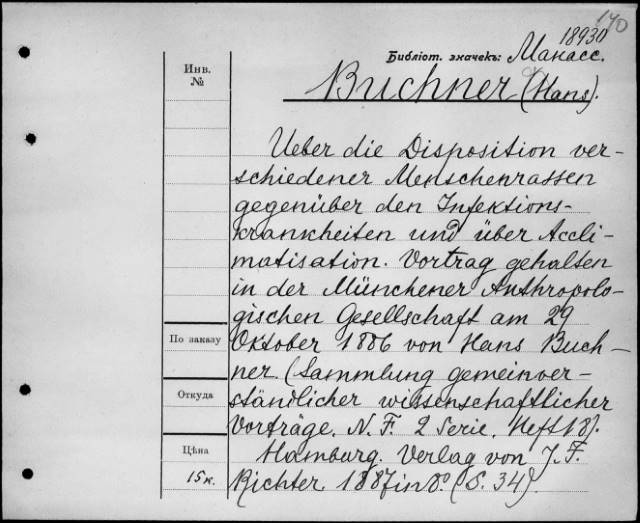 140
18930
Библіот. значекъ: Манасс.
Инв.
№
Buchner (Hans).
Ueber die Disposition ver-
schiedener Menschenrassen
gegenüber den Infektions-
krankheiten und über Accli-
matisation. Vortrag gehalten
in der Münchener Anthropolo-
gischen Gesellschaft am 29
По заказу
Oktober 1886 von Hans Buch-
ner. (Sammlung gemeinver-
Откуда
ständlicher wissenschaftlicher
Vorträge. N. F. 2 Serie. Heft 18).
Цѣна
Hamburg. Verlag von J. F.
15 к.
Richter 1887 in 8º. (S. 34).